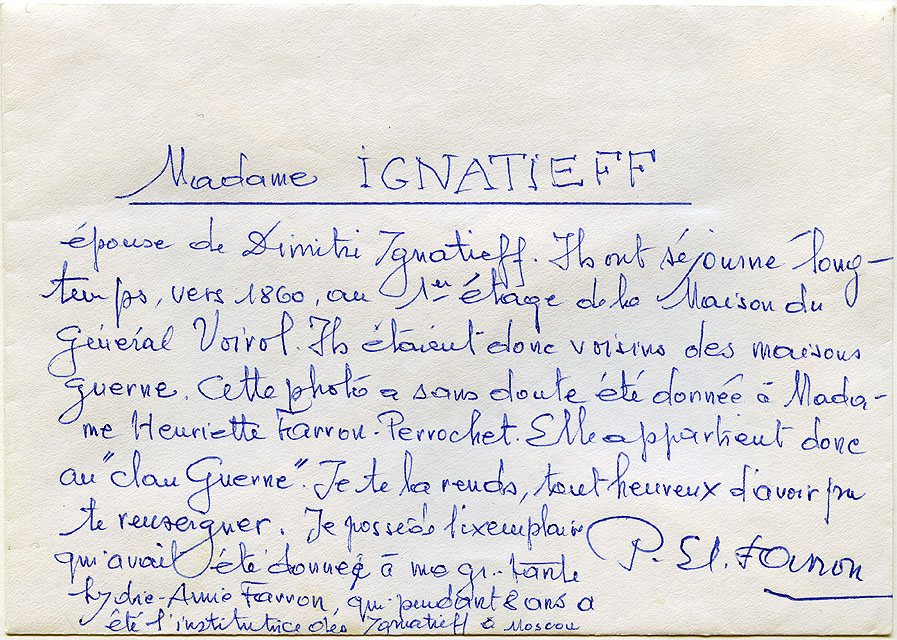 Madame IGNATIEFF
épouse de Dimitri Ignatieff. Ils ont séjourné long-
temps, vers 1860, au 1er étage de la Maison du
Général Voirol. Ils étaient donc voisins des maisons
Guerne. Cette photo a sans doute été donnée à Mada-
me Henriette Farron-Perrochet. Elle appartient donc
au "clan Guerne". Je te la rends, tout heureux d'avoir pu
te renseigner. Je possède l'exemplaire
qui avait été donné à ma gr. tante
Lydie-Annie Farron, qui pendant 8 ans a
été l'institutrice des Ignatieff à Moscou
P. El. Farron